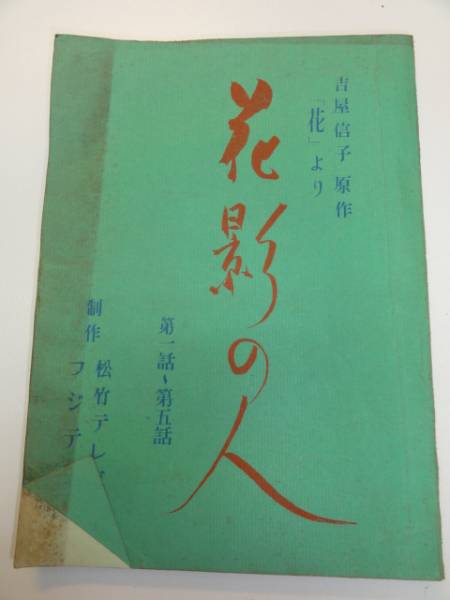 吉屋信子 原作
「花」より
花影の人
第一話〜第五話
制作 松竹テレ
フジテ